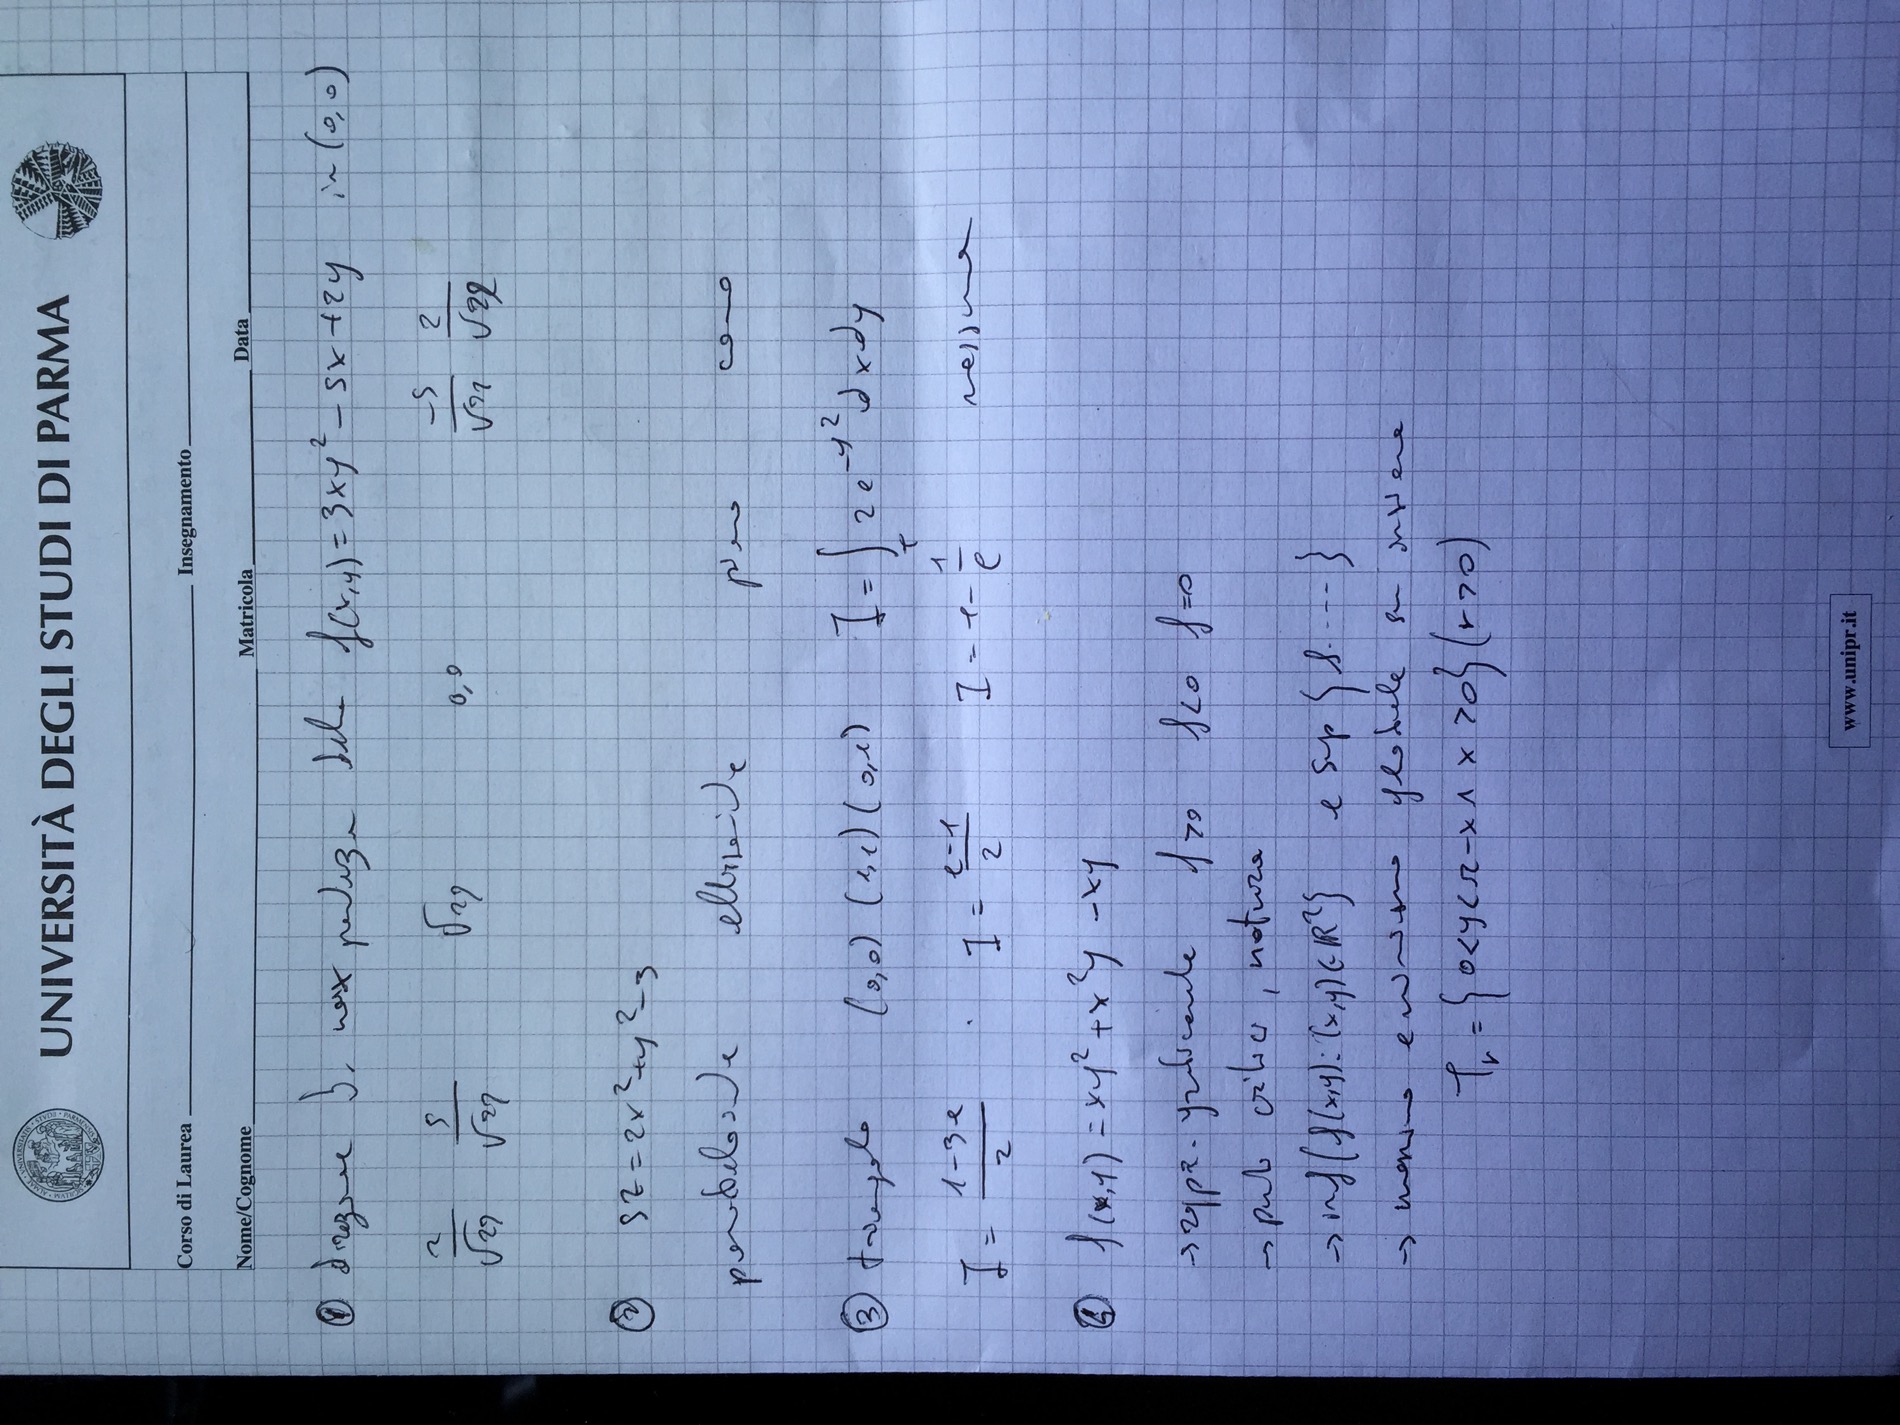 UNIVERSITÀ DEGLI STUDI DI PARMA
Corso di Laurea Insegnamento
Nome/Cognome Matricola Data
① direzione di max pendenza della f(x,y)=3xy²-5x+2y in (0,0)
2/√29 5/√29 √29 0,0 -5/√29 2/√29
② 5z=2x²+y²-3
paraboloide ellissoide piano cono
③ triangolo (0,0) (1,1) (0,1) I=∫_T 2e^{-y²}dxdy
I=(1-3e)/2 I=(e-1)/2 I=1-1/e nessuna
④ f(x,y)=xy²+x²y-xy
→ rappr. graficamente f>0 f<0 f=0
→ punti critici, natura
→ inf{f(x,y):(x,y)∈ℝ²} e sup{f.----}
→ massimo e minimo globale su insieme
T_r={0<y<r-x ∧ x>0}(r>0)
www.unipr.it